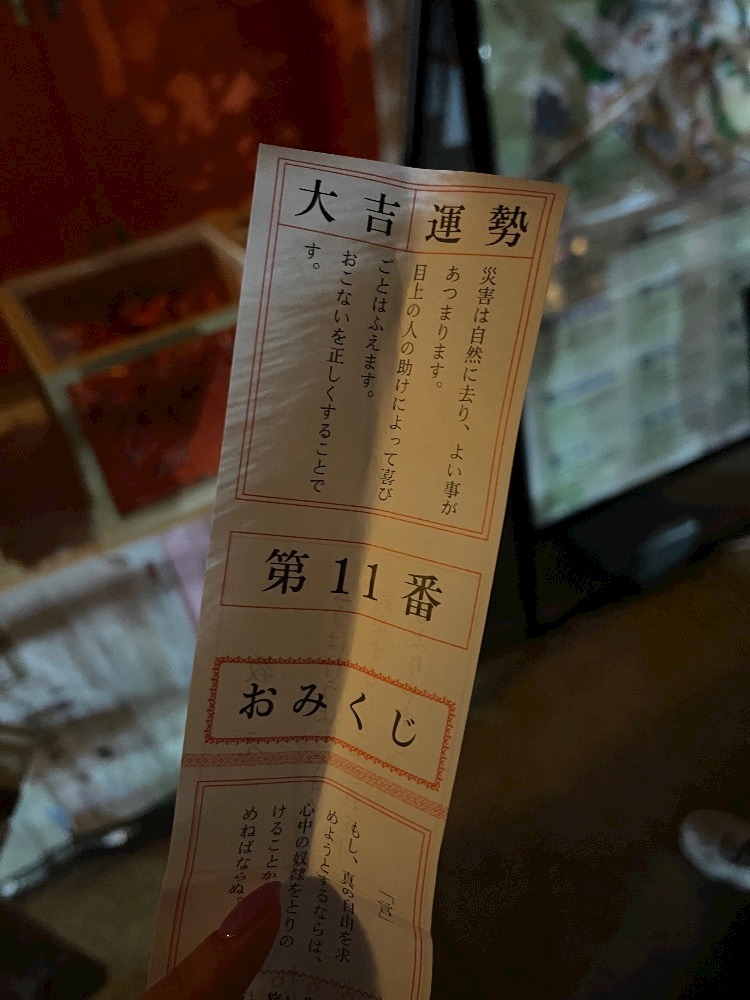 大吉運勢
災害は自然に去り、よい事が
あつまります。
目上の人の助けによって喜び
ごとはふえます。
おこないを正しくすることで
す。
第11番
おみくじ
もし、真の自由を求
めようとするならば、
心中の奴隷をとりの
けることか
めねばならぬ。